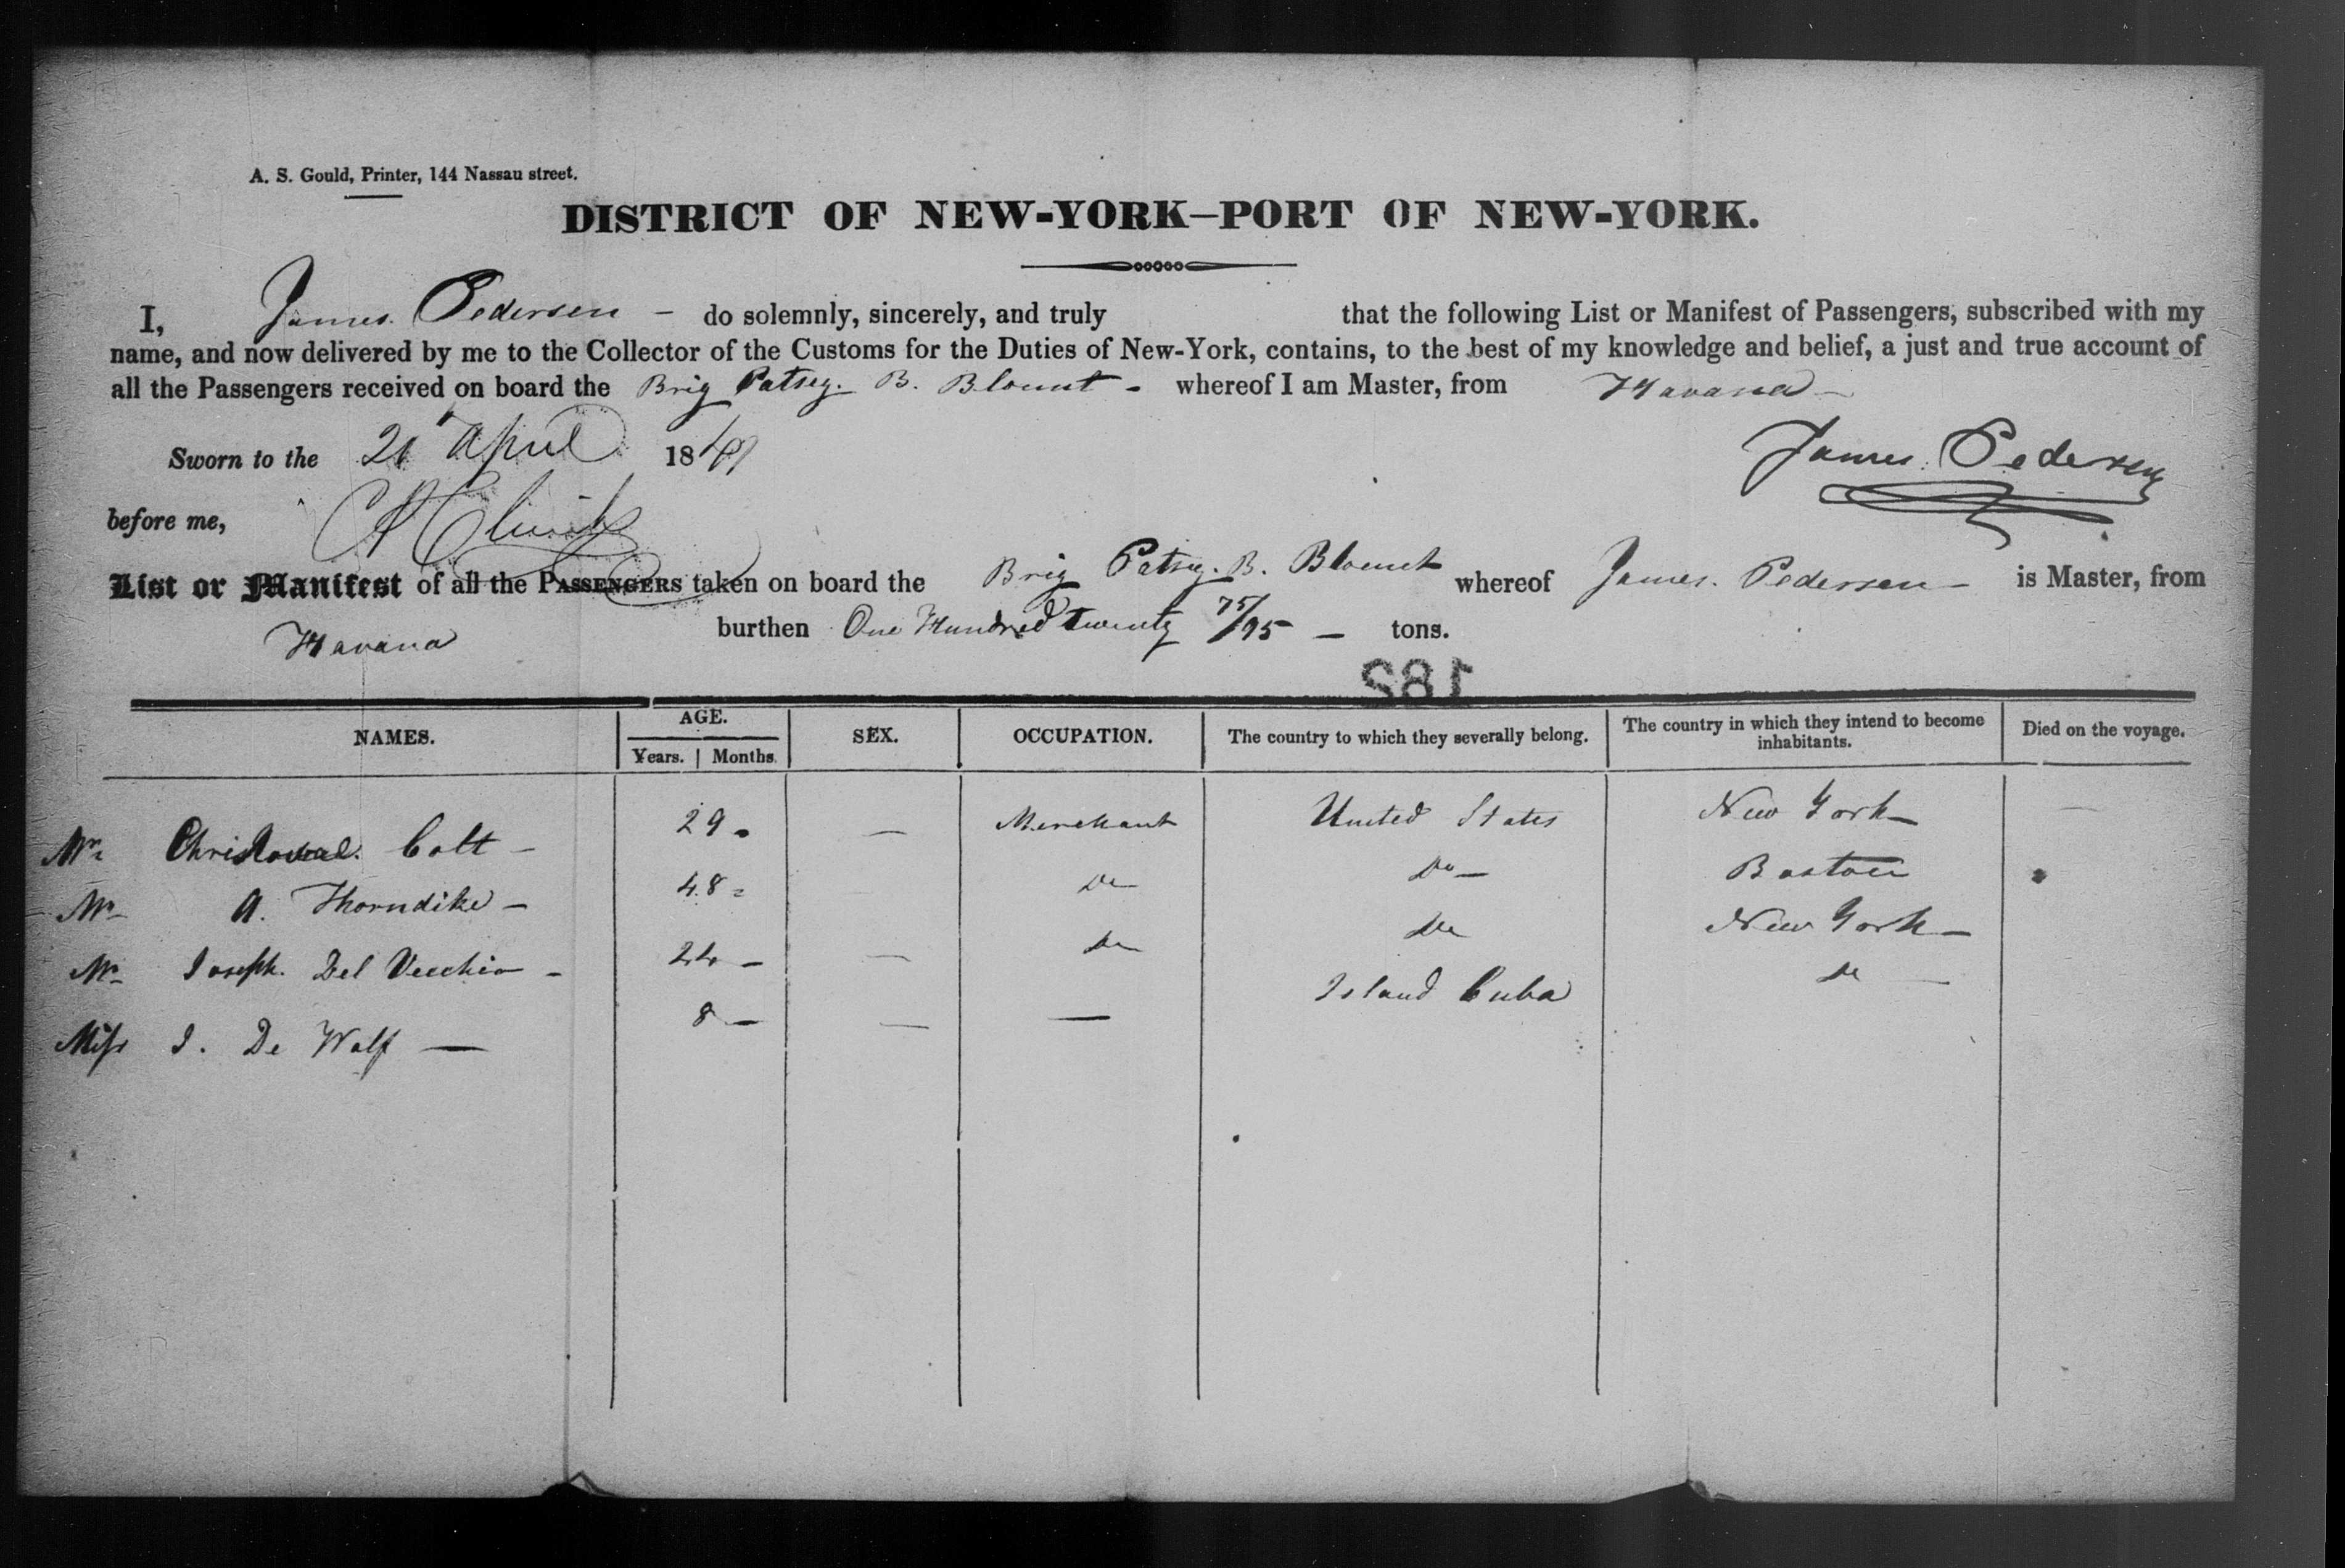 A. S. Gould, Printer, 144 Nassau street.
DISTRICT OF NEW-YORK—PORT OF NEW-YORK.
I, James Pedersen — do solemnly, sincerely, and truly that the following List or Manifest of Passengers, subscribed with my
name, and now delivered by me to the Collector of the Customs for the Duties of New-York, contains, to the best of my knowledge and belief, a just and true account of
all the Passengers received on board the Brig Patsey B. Blount - whereof I am Master, from Havana —
Sworn to the 21 April 184
James Pedersen
before me,
List or Manifest of all the PASSENGERS taken on board the Brig Patsey B. Blount whereof James Pedersen — is Master, from
Havana burthen One Hundred twenty 75/95 — tons.
182
NAMES. AGE. Years. Months. SEX. OCCUPATION. The country to which they severally belong. The country in which they intend to become inhabitants. Died on the voyage.
Mr Colt — 29 — Merchant United States New York — —
Mr A. Thorndike — 48 Do Do — Boston
Mr Joseph Del Vecchio — 24 — — Do Do New York —
Miss J. De Wolf — 8 — — — Island Cuba Do —